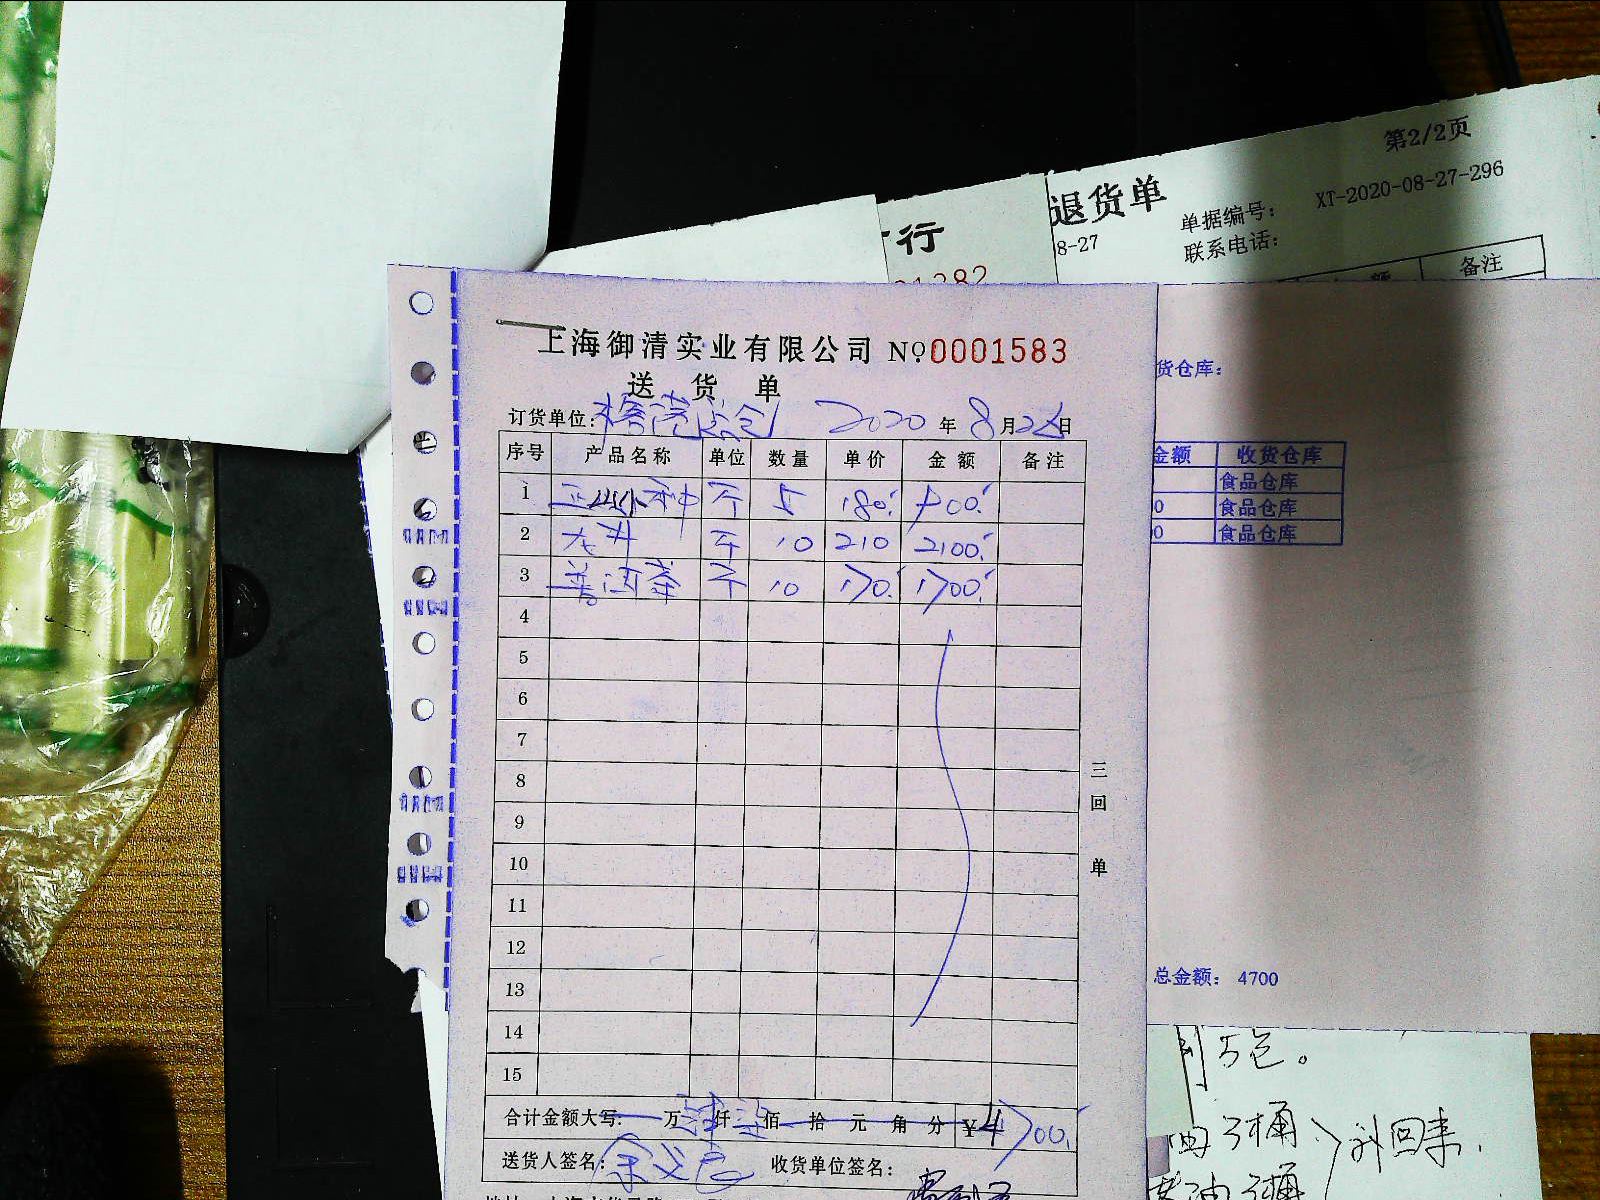 第2/2页
退货单
单据编号: XT-2020-08-27-296
8-27
联系电话:
行
备注
上海御清实业有限公司 No 0001583
送货单
订货单位: 2020 年 8 月 日
序号 产品名称 单位 数量 单价 金额 备注
1 正山小种 斤 5 180 900
2 龙井 斤 10 210 2100
3 普洱茶 斤 10 170 1700
4
5
6
7
8
9
10
11
12
13
14
15
三回单
合计金额大写: 万 肆 仟 柒 佰 拾 元 角 分 ¥4700
送货人签名: 收货单位签名:
货仓库:
金额 收货仓库
食品仓库
0 食品仓库
0 食品仓库
总金额: 4700
5包。
3桶
油3桶
回来.